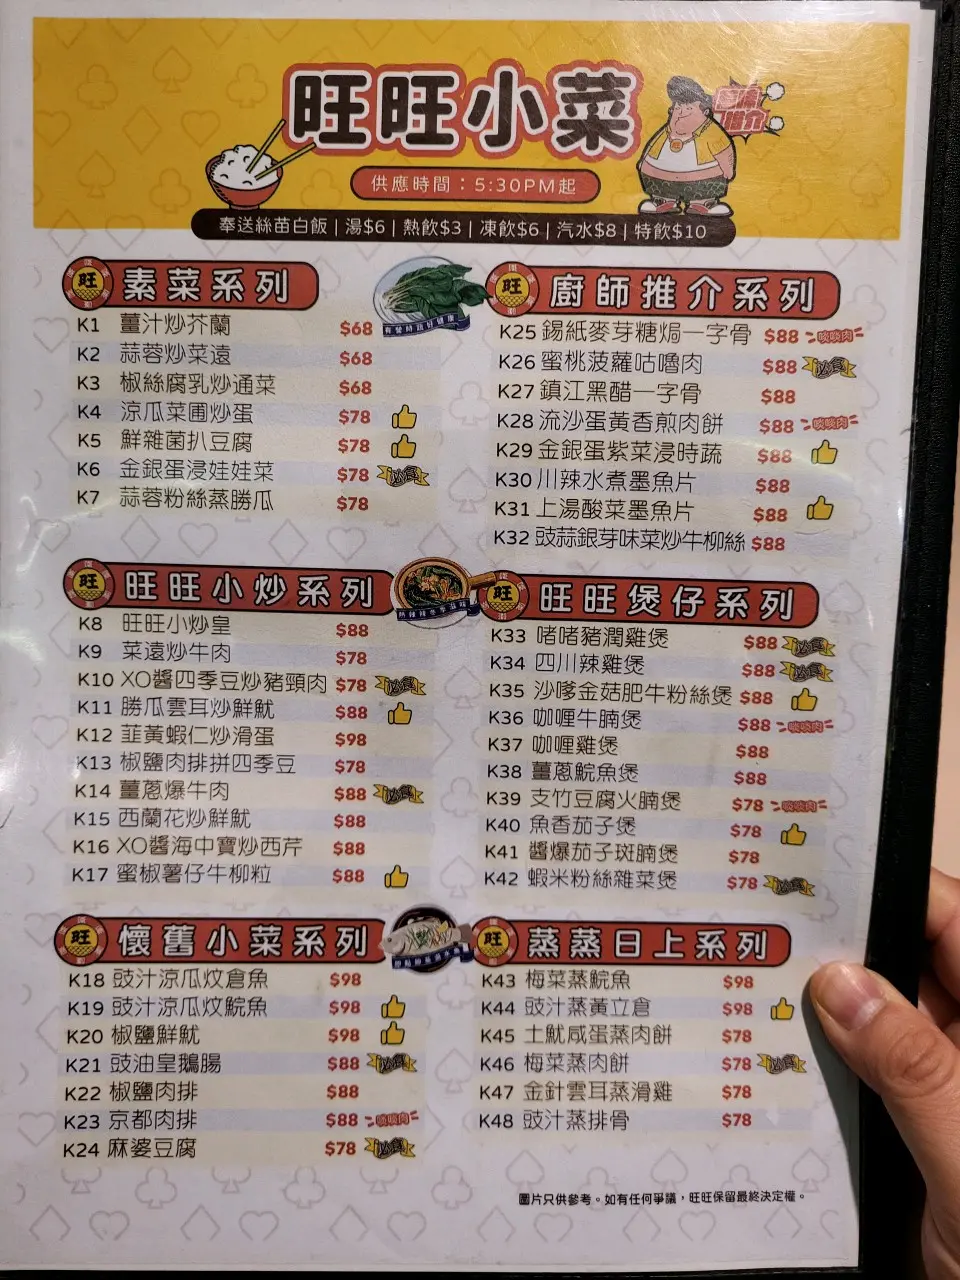 旺旺小菜
廚師推介
供應時間：5:30PM起
奉送絲苗白飯 | 湯$6 | 熱飲$3 | 凍飲$6 | 汽水$8 | 特飲$10
旺 素菜系列
K1 薑汁炒芥蘭 $68
K2 蒜蓉炒菜遠 $68
K3 椒絲腐乳炒通菜 $68
K4 涼瓜菜圃炒蛋 $78
K5 鮮雜菌扒豆腐 $78
K6 金銀蛋浸娃娃菜 $78 必食
K7 蒜蓉粉絲蒸勝瓜 $78
旺 旺旺小炒系列
K8 旺旺小炒皇 $88
K9 菜遠炒牛肉 $78
K10 XO醬四季豆炒豬頸肉 $78 必食
K11 勝瓜雲耳炒鮮魷 $88
K12 韮黃蝦仁炒滑蛋 $98
K13 椒鹽肉排拼四季豆 $78
K14 薑蔥爆牛肉 $88 必食
K15 西蘭花炒鮮魷 $88
K16 XO醬海中寶炒西芹 $88
K17 蜜椒薯仔牛柳粒 $88
旺 懷舊小菜系列
K18 豉汁涼瓜炆倉魚 $98
K19 豉汁涼瓜炆鯇魚 $98
K20 椒鹽鮮魷 $98
K21 豉油皇鵝腸 $88 必食
K22 椒鹽肉排 $88
K23 京都肉排 $88 啖啖肉
K24 麻婆豆腐 $78 必食
旺 廚師推介系列
K25 錫紙麥芽糖焗一字骨 $88 啖啖肉
K26 蜜桃菠蘿咕嚕肉 $88 必食
K27 鎮江黑醋一字骨 $88
K28 流沙蛋黃香煎肉餅 $88 啖啖肉
K29 金銀蛋紫菜浸時蔬 $88
K30 川辣水煮墨魚片 $88
K31 上湯酸菜墨魚片 $88
K32 豉蒜銀芽味菜炒牛柳絲 $88
旺 旺旺煲仔系列
K33 啫啫豬潤雞煲 $88 必食
K34 四川辣雞煲 $88 必食
K35 沙嗲金菇肥牛粉絲煲 $88
K36 咖喱牛腩煲 $88 啖啖肉
K37 咖喱雞煲 $88
K38 薑蔥鯇魚煲 $88
K39 支竹豆腐火腩煲 $78 啖啖肉
K40 魚香茄子煲 $78
K41 醬爆茄子斑腩煲 $78
K42 蝦米粉絲雜菜煲 $78 必食
旺 蒸蒸日上系列
K43 梅菜蒸鯇魚 $98
K44 豉汁蒸黃立倉 $98
K45 土魷咸蛋蒸肉餅 $78
K46 梅菜蒸肉餅 $78 必食
K47 金針雲耳蒸滑雞 $78
K48 豉汁蒸排骨 $78
圖片只供參考。如有任何爭議，旺旺保留最終決定權。